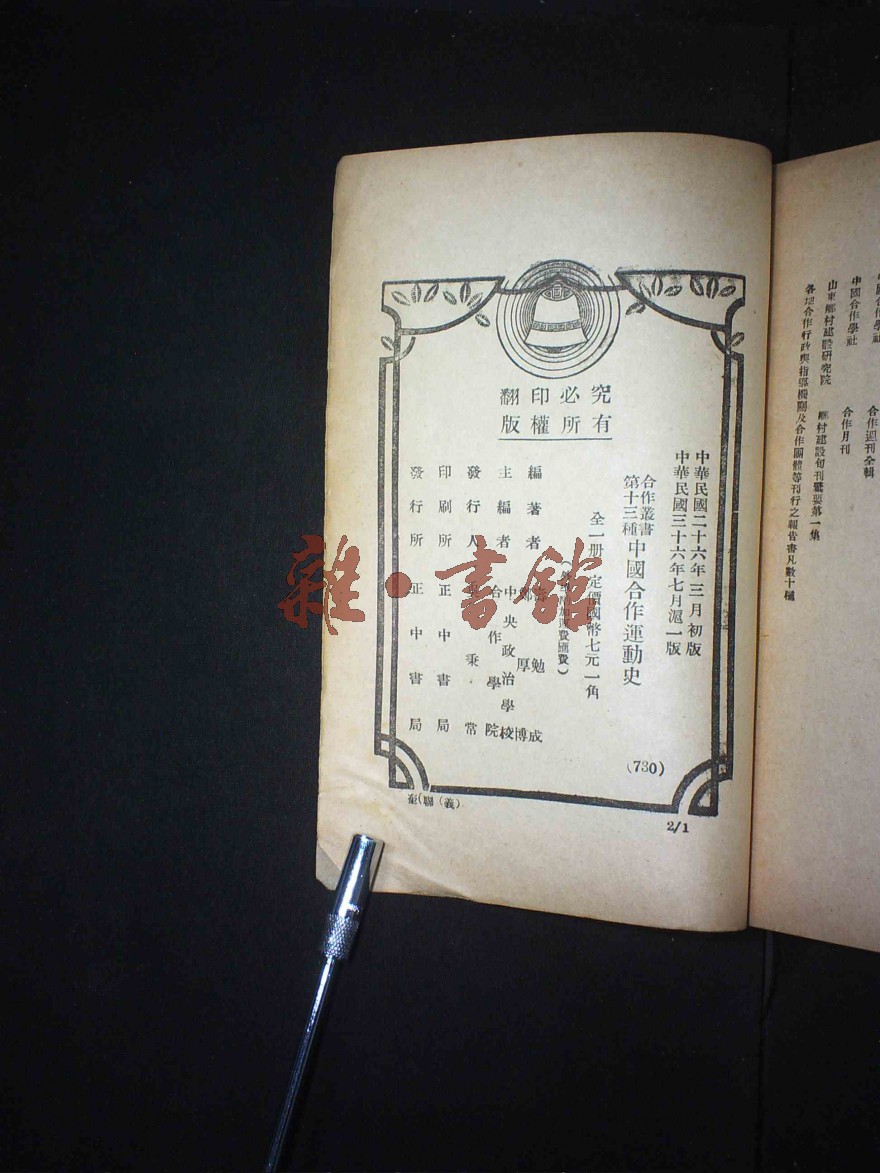 中國合作學社 合作月刊
山東鄉村建設研究院 鄉村建設旬刊彙要第一集
各地合作行政與指導機關及合作團體等刊行之報告書凡數十種
合作週刊全輯
翻印必究
版權所有
中華民國二十六年三月初版
中華民國三十六年七月滬一版
合作叢書
第十三種
中國合作運動史
全一冊 定價國幣七元一角
費匯費)
編著者 勉成
鄭厚博
主編者 中央政治學校
合作學院
發行人 秉常
印刷所 正中書局
發行所 正中書局
(730)
2/1
雜·書館